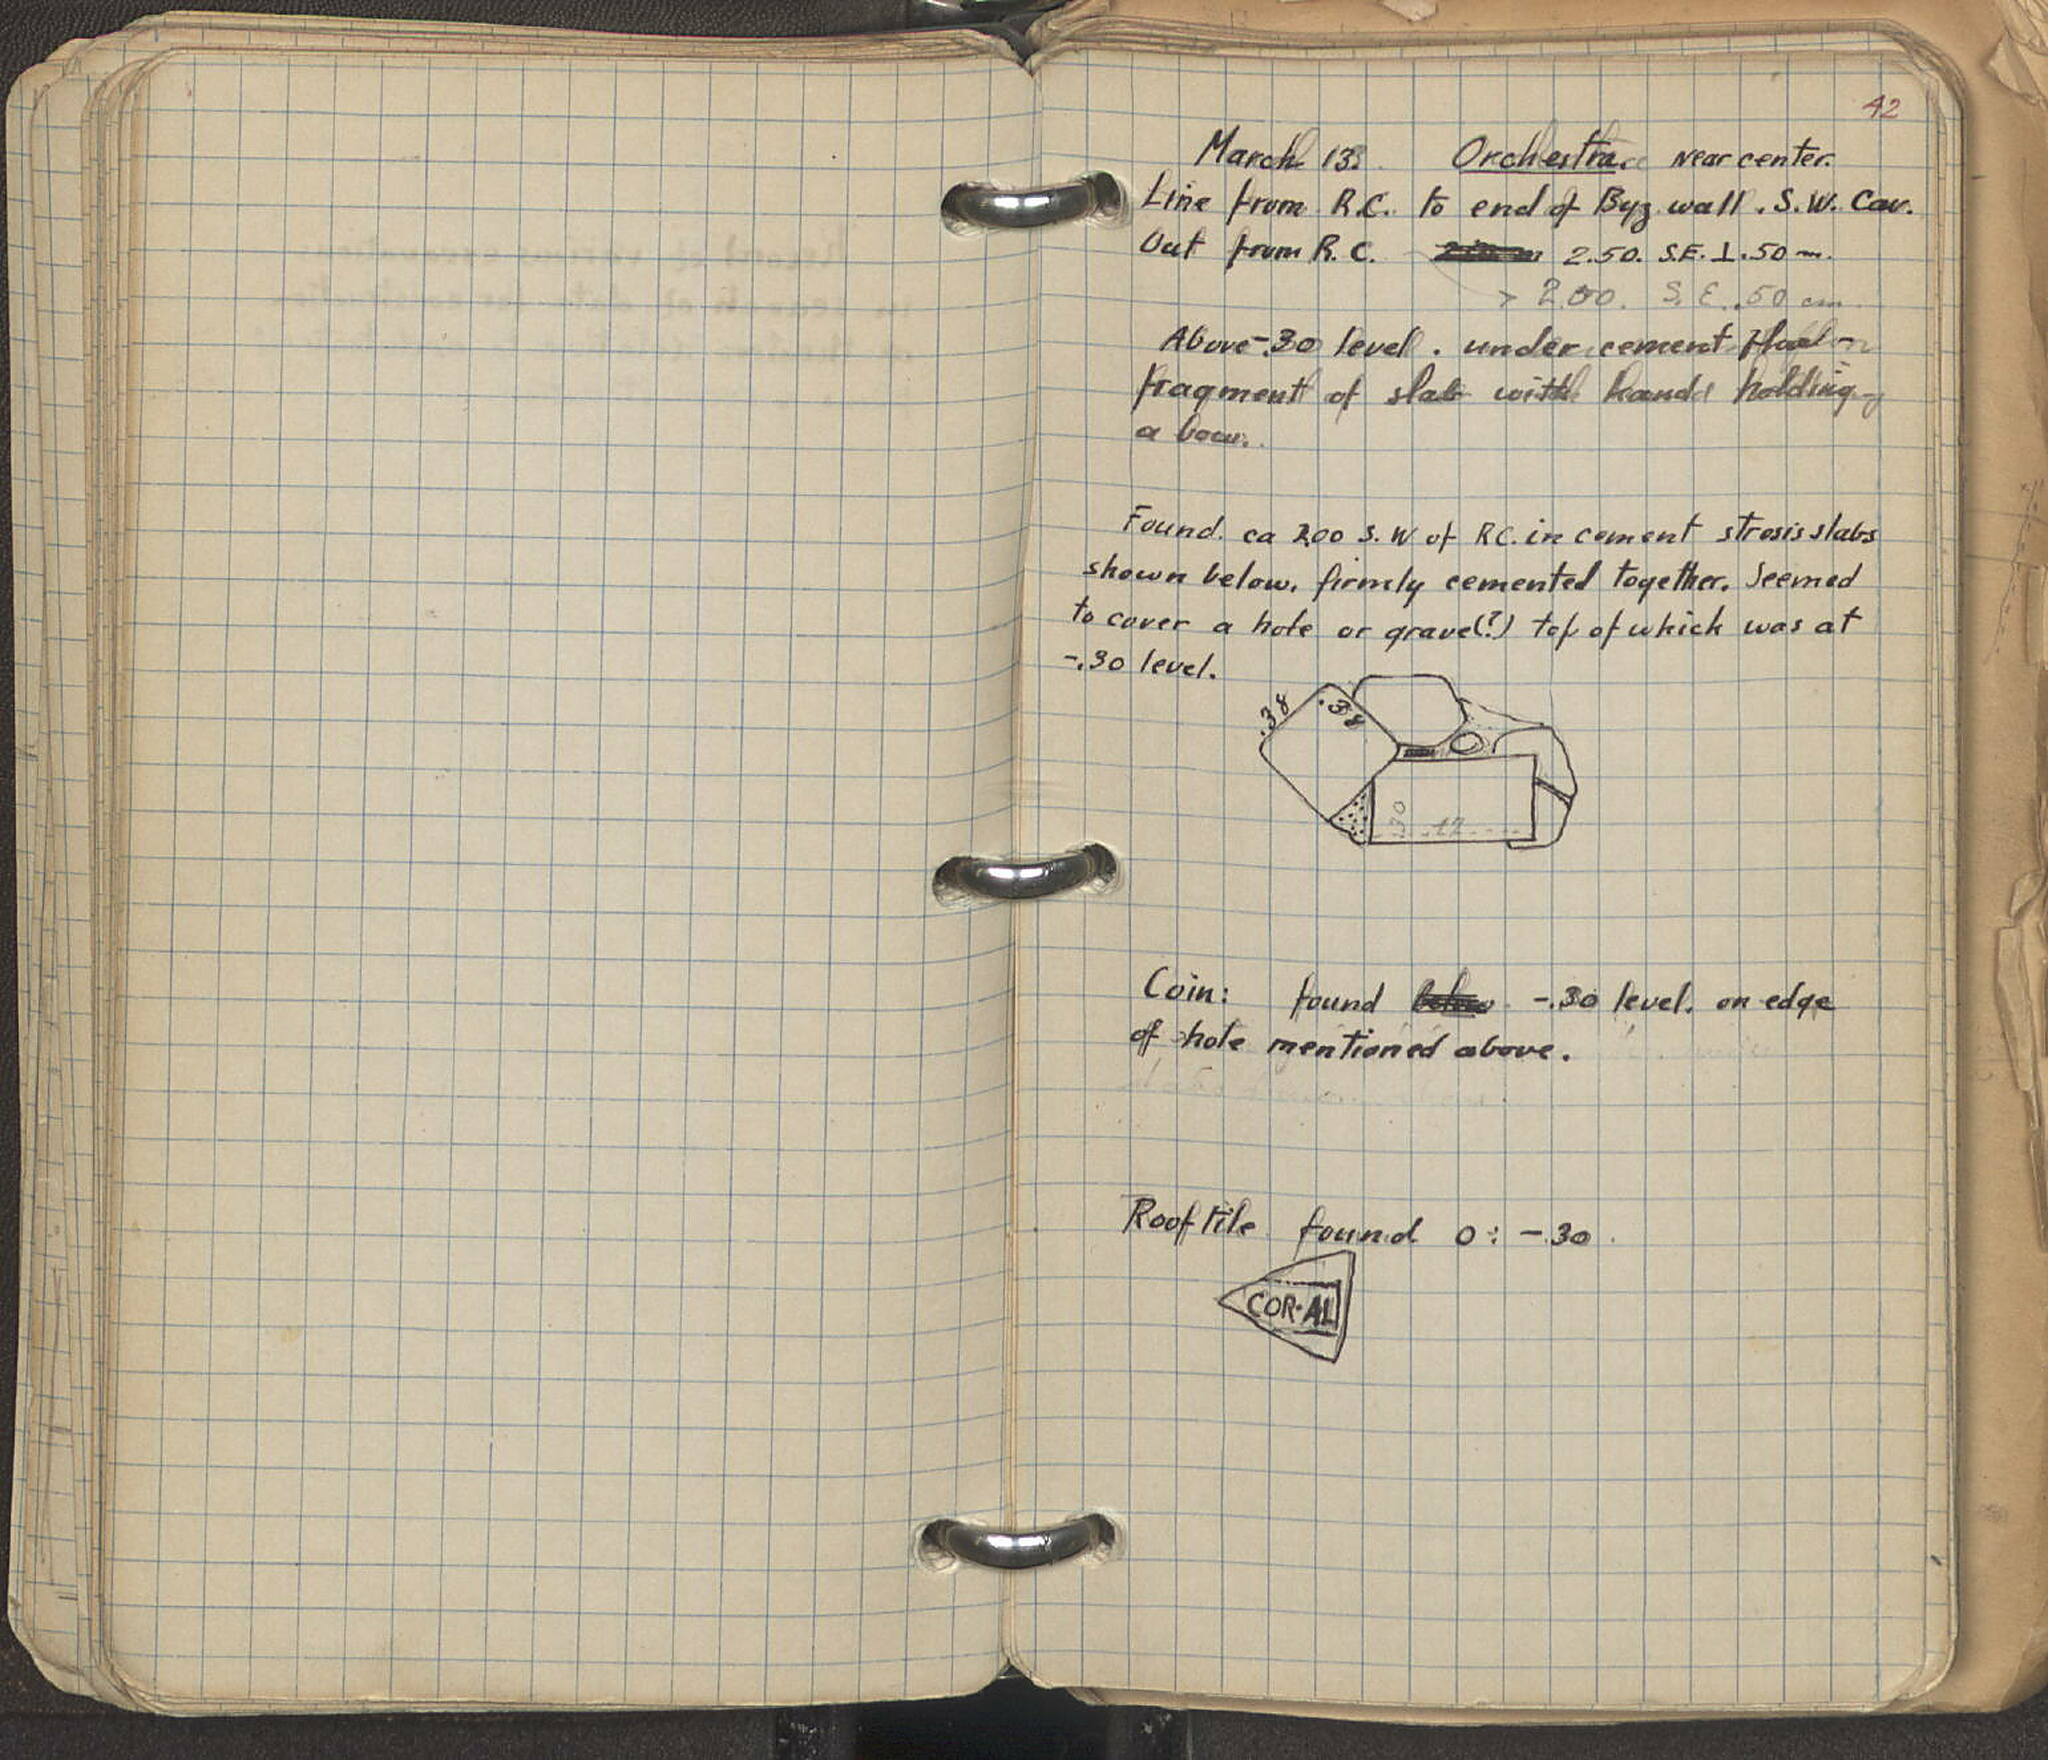 42
March 13. Orchestra near center.
Line from R.C. to end of Byz. wall. S.W. Cav.
Out from R.C. 2.50. S.E. ⊥ .50 m.
> 2.00. S.E. .50 cm.
Above -.30 level. under cement
fragment of slab with hand holding
a bow.
Found. ca 2.00 S.W of R.C. in cement strosis slabs
shown below, firmly cemented together. Seemed
to cover a hole or grave(?) top of which was at
-.30 level.
.38 .38
.30
Coin: found below -.30 level. on edge
of hole mentioned above.
Roof tile found 0 : -.30.
COR·AL